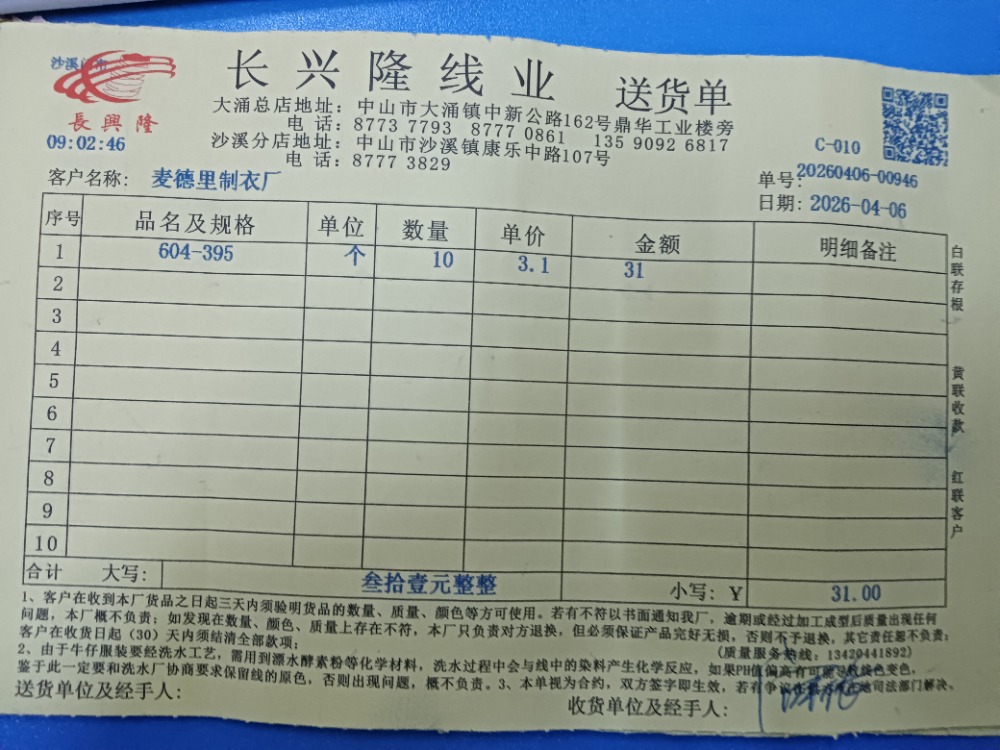 长兴隆线业 送货单
沙溪
長興隆
大涌总店地址：中山市大涌镇中新公路162号鼎华工业楼旁
电话：8773 7793 8770 0861 135 9092 6817
沙溪分店地址：中山市沙溪镇康乐中路107号
电话：8777 3829
09:02:46
C-010
客户名称：麦德里制衣厂
单号：20260406-00946
日期：2026-04-06
序号 品名及规格 单位 数量 单价 金额 明细备注
1 604-395 个 10 3.1 31
2
3
4
5
6
7
8
9
10
合计 大写： 叁拾壹元整整 小写：¥ 31.00
白联存根
黄联收款
红联客户
1、客户在收到本厂货品之日起三天内须验明货品的数量、质量、颜色等方可使用。若有不符以书面通知我厂，逾期或经过加工成型后质量出现任何
问题，本厂概不负责；如发现在数量、颜色、质量上存在不符，本厂只负责对方退换，但必须保证产品完好无损，否则不予退换，其它责任恕不负责；
客户在收货日起（30）天内须结清全部款项；
(质量服务热线：13420441892)
2、由于牛仔服装要经洗水工艺，需用到漂水酵素粉等化学材料，洗水过程中会与线中的染料产生化学反应，如果PH值偏高有可能导致线色变色，
鉴于此一定要和洗水厂协商要求保留线的原色，否则出现问题，概不负责。3、本单视为合约，双方签字即生效，若有争议在 地司法部门解决、
送货单位及经手人：
收货单位及经手人：